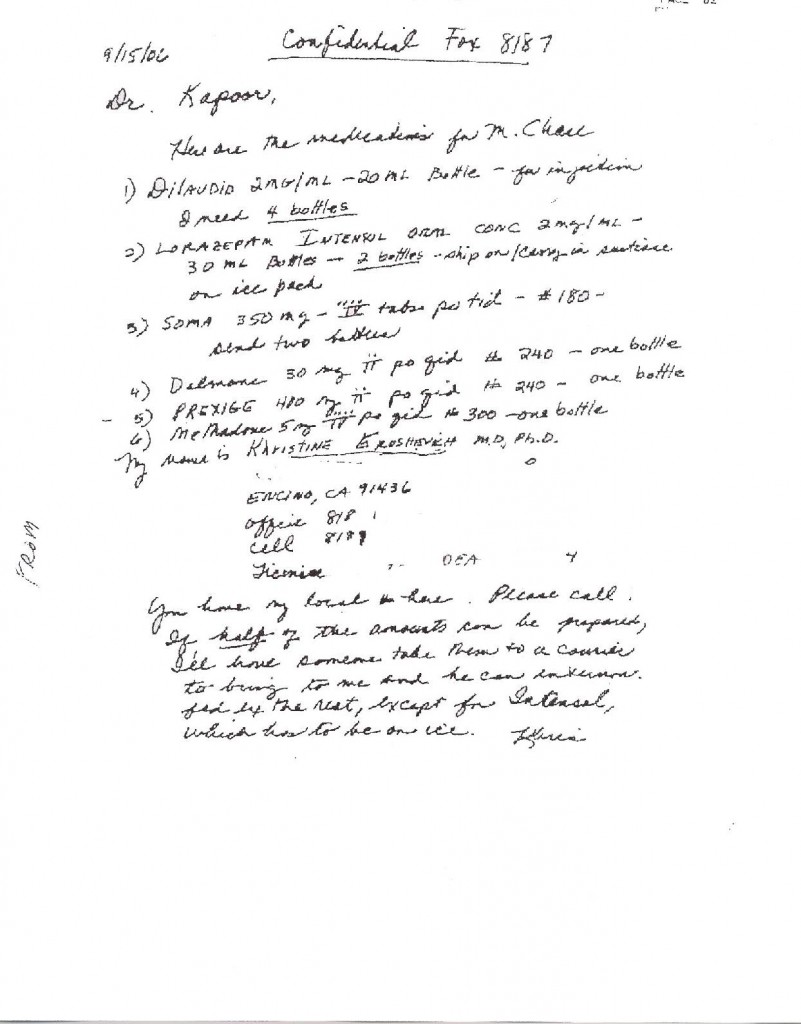 Confidential Fax 8187
9/15/06
Dr. Kapoor,
Here are the medications for M. Chase
1) DILAUDID 2MG/ML - 20 ML Bottle - for injection
I need 4 bottles
2) LORAZEPAM INTENSOL ORAL CONC 2mg/ML -
30 ML Bottles - 2 bottles - ship on/carry in suitcase
on ice pack
3) SOMA 350 mg - tabs po tid - # 180 -
send two bottles
4) Dalmane 30 mg ii po qid # 240 - one bottle
- 5) PREXIGE 400 mg ii po qid # 240 - one bottle
6) Methadone 5 mg po qid # 300 - one bottle
My name is KHRISTINE EROSHEVICH M.D, Ph.D.
ENCINO, CA 91436
office 818
cell 818
License DEA 4
FROM
You have my local # here. Please call.
If half of the amounts can be prepared,
I'll have someone take them to a courier
to bring to me and he can
fed ex the rest, except for Intensol,
which has to be on ice. Khris